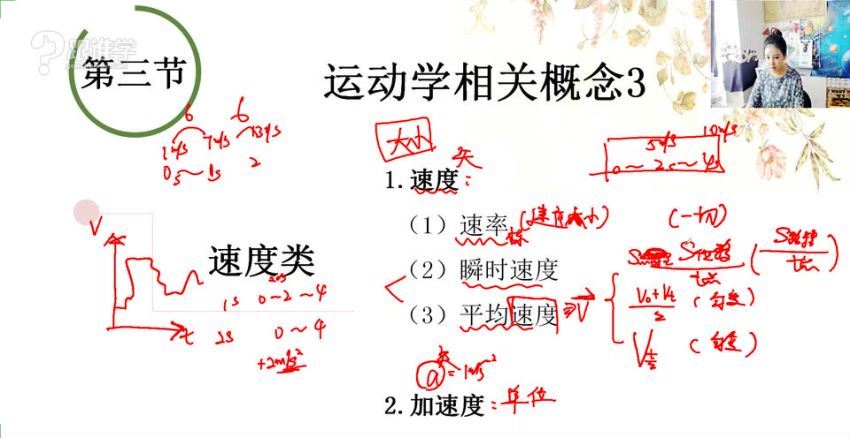 跟谁学
第三节
运动学相关概念3
6 6
1m/s 7m/s 13m/s
0s～1s 2
大小
矢
5m/s 10m/s
0～2s～4s
1.速度：
（1）速率
标
(速度大小)
(一切)
V
速度类
（2）瞬时速度
S位移
t总
(S路程
t总)
1s 0～2～4
（3）平均速度
V
V₀+Vt
2
(匀变)
t
2s 0～4
+2m/s²
V t/2
(匀变)
a
矢
=1m/s⁻²
2.加速度：单位